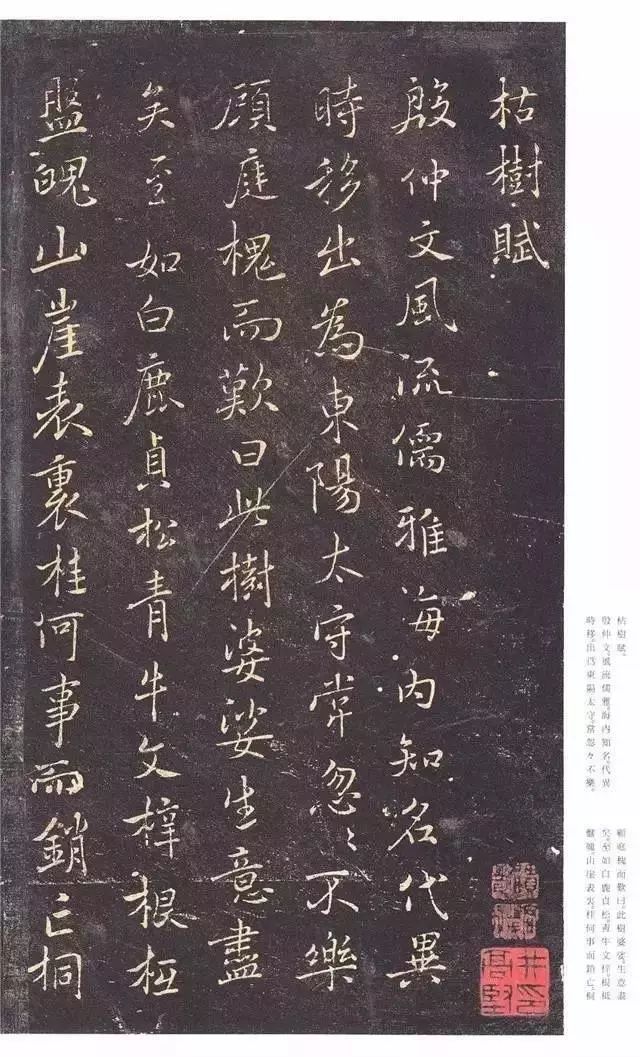 枯樹賦
殷仲文風流儒雅海内知名代異
時移出為東陽太守常忽〻不樂
顧庭槐而歎曰此樹婆娑生意盡
矣至如白鹿貞松青牛文梓根柢
盤魄山崖表裏桂何事而銷亡桐
枯樹賦。
殷仲文。風流儒雅。海内知名。代異
時移。出為東陽太守。常忽々不樂。
顧庭槐而歎曰。此樹婆娑。生意盡
矣。至如白鹿貞松。青牛文梓。根柢
盤魄。山崖表裏。桂何事而銷亡。桐